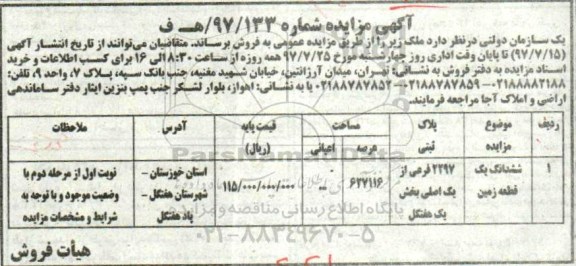 آگهی مزایده شماره ۹۷/۱۳۳/هـ ف
یک سازمان دولتی درنظر دارد ملک زیر را از طریق مزایده عمومی به فروش برساند. متقاضیان می‌توانند از تاریخ انتشار آگهی
(۹۷/۷/۱۵) تا پایان وقت اداری روز چهارشنبه مورخ ۹۷/۷/۲۵ همه روزه از ساعت ۸:۳۰ الی ۱۶ برای کسب اطلاعات و خرید
اسناد مزایده به دفتر فروش به نشانی: تهران، میدان آرژانتین، خیابان شهید مفتحه، جنب بانک سپه، پلاک ۷، واحد ۹، تلفن:
۰۲۱۸۸۸۸۲۱۸۸-۰۲۱۸۸۷۸۷۸۵۹-۰۲۱۸۸۷۸۷۸۵۲ یا به نشانی: اهواز، بلوار لشکر جنب پمپ بنزین ایثار دفتر ساماندهی
اراضی و املاک آجا مراجعه فرمایند.
ردیف موضوع مزایده پلاک ثبتی مساحت عرصه اعیانی قیمت پایه (ریال) آدرس ملاحظات
۱ ششدانگ یک قطعه زمین ۲۲۹۷ فرعی از یک اصلی بخش یک هفتگل ۶۲۷۱۱۶ ... ۱۱۵/۰۰۰/۰۰۰/۰۰۰ استان خوزستان – شهرستان هفتگل – پاد هفتگل نوبت اول از مرحله دوم با وضعیت موجود و با توجه به شرایط و مشخصات مزایده
هیأت فروش
ParsNamadData
پایگاه اطلاع رسانی مناقصه و مزایده
۰۲۱-۸۸۳۴۹۶۷۰-۵